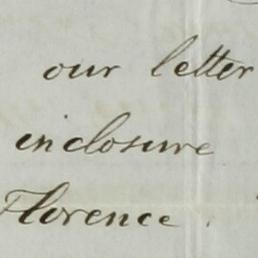 our letter
enclosure
Florence.